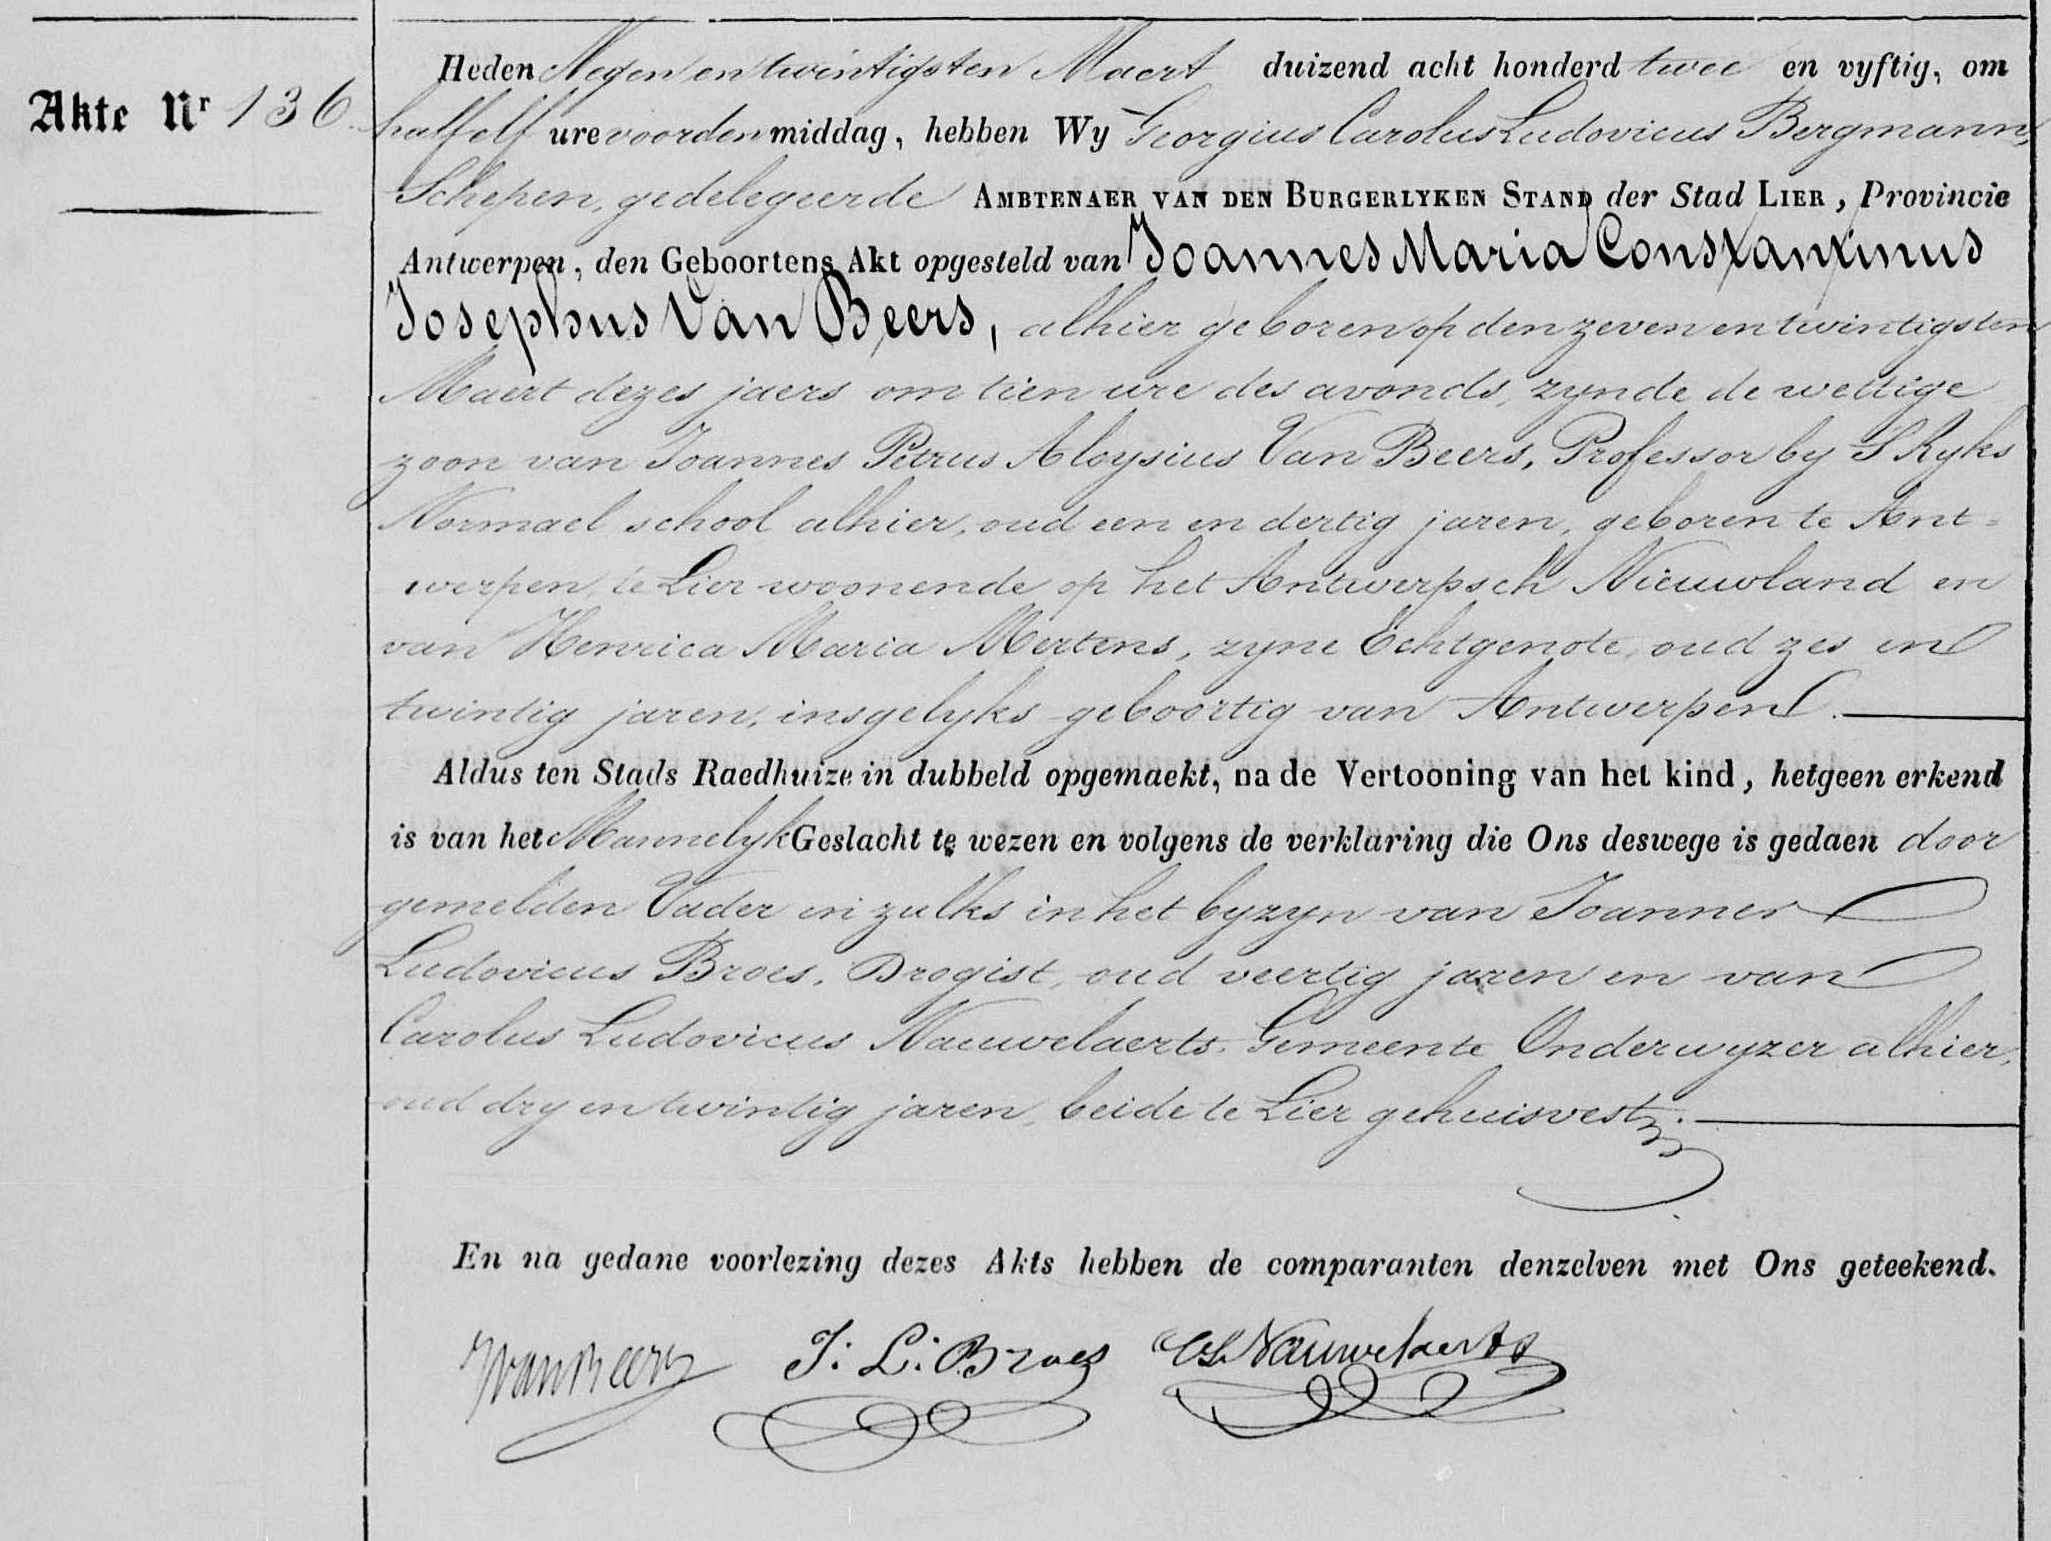 Akte Nr 136.
Heden Negen en twintigsten Maert duizend acht honderd twee en vyftig, om
half elf ure voor den middag, hebben Wy Georgius Carolus Ludovicus Bergmann,
Schepen, gedelegeerde AMBTENAER VAN DEN BURGERLYKEN STAND der Stad LIER, Provincie
Antwerpen, den Geboortens Akt opgesteld van Joannes Maria Constantinus
Josephus Van Beers, alhier geboren op den zeven en twintigsten
Maert dezes jaers om tien ure des avonds, zynde de wettige
zoon van Joannes Petrus Aloysius Van Beers, Professor by S Ryks
Normael school alhier, oud een en dertig jaren, geboren te Ant=
werpen, te Lier woonende op het Antwerpsch Nieuwland en
van Henrica Maria Mertens, zyne Echtgenote, oud zes en
twintig jaren, insgelyks geboortig van Antwerpen.
Aldus ten Stads Raedhuize in dubbeld opgemaekt, na de Vertooning van het kind, hetgeen erkend
is van het Mannelyk Geslacht te wezen en volgens de verklaring die Ons deswege is gedaen door
gemelden Vader en zulks in het byzyn van Joannes
Ludovicus Broes, Drogist, oud veertig jaren en van
Carolus Ludovicus Nauwelaerts, Gemeente Onderwyzer alhier,
oud dry en twintig jaren, beide te Lier gehuisvest.
En na gedane voorlezing dezes Akts hebben de comparanten denzelven met Ons geteekend.
JvanBeers J: L: Broes CL Nauwelaerts